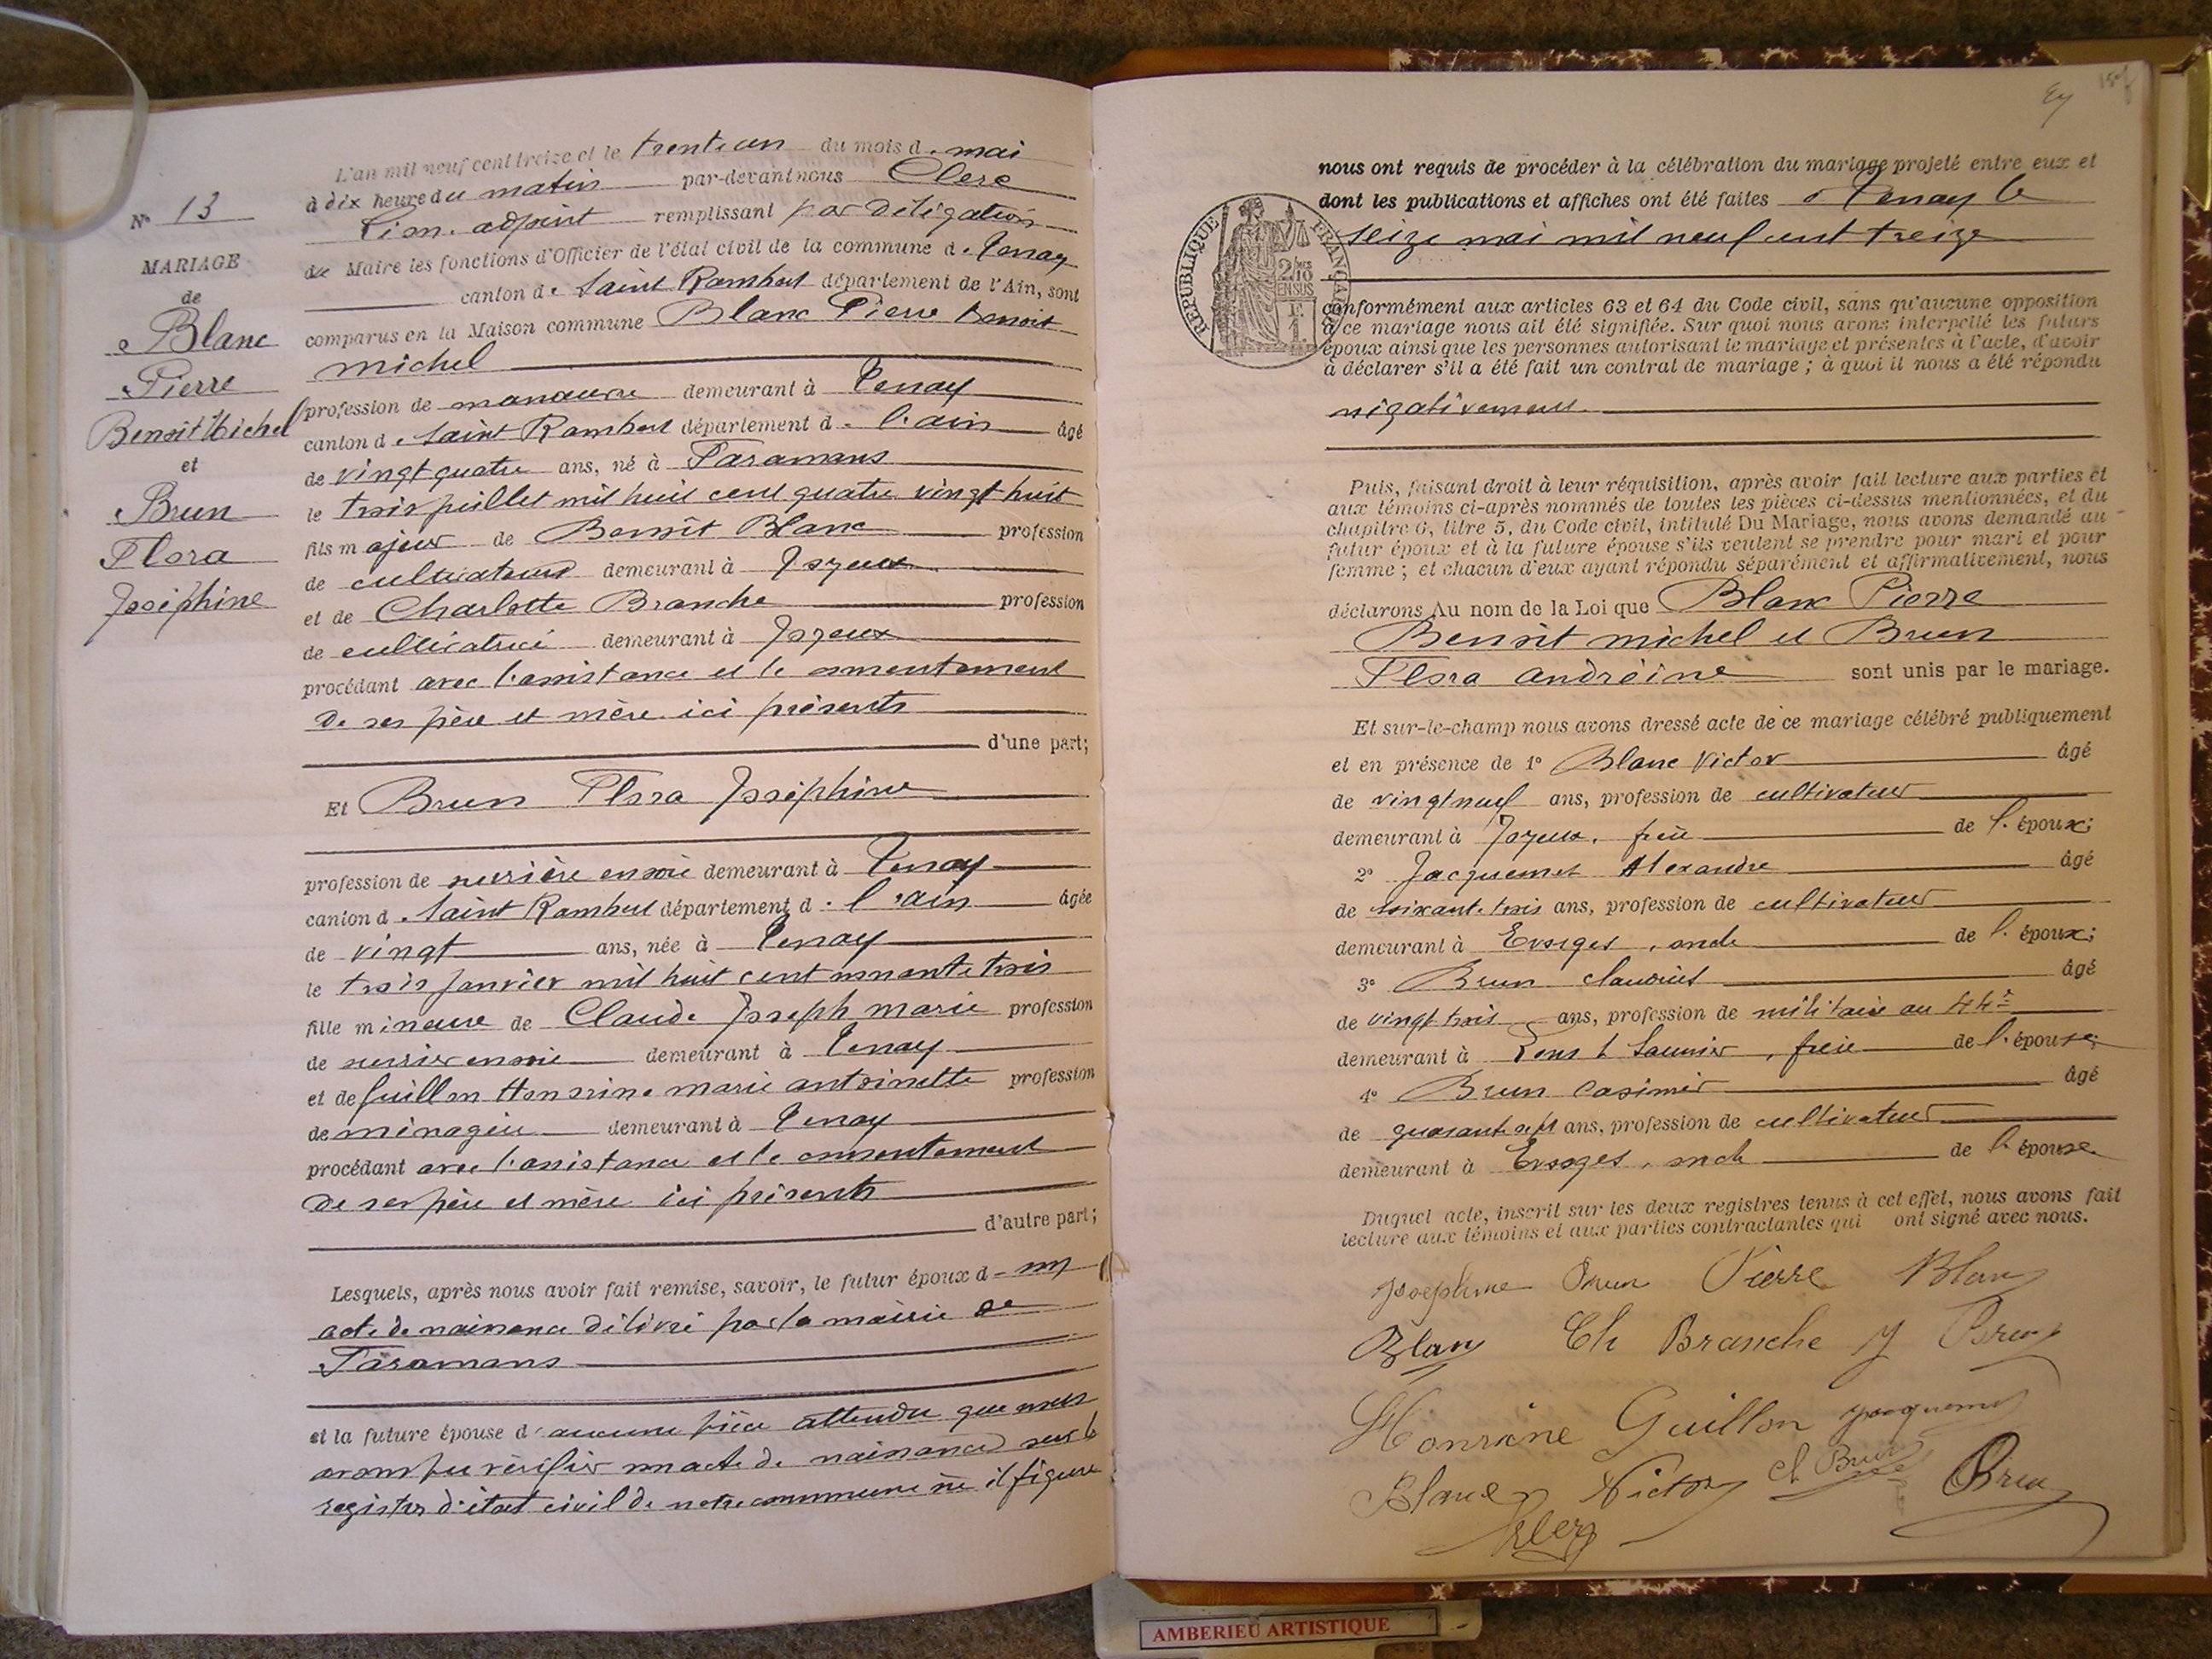 L'an mil neuf cent treize et le trente un du mois d. mai
à dix heure du matin par-devant nous Clerc
Léon. adjoint remplissant par délégation
de Maire les fonctions d'Officier de l'état civil de la commune d. Tenay
canton d. Saint Rambert département de l'Ain, sont
comparus en la Maison commune Blanc Pierre Benoit
michel
profession de manœuvre demeurant à Tenay
canton d. Saint Rambert département d. l'ain âgé
de vingt quatre ans, né à Faramans
le trois juillet mil huit cent quatre vingt huit
fils majeur de Benoît Blanc profession
de cultivateur demeurant à Joyeux
et de Charlotte Branche profession
de cultivatrice demeurant à Joyeux
procédant avec l'assistance et le consentement
de ses père et mère ici présents
d'une part;
Et Brun Flora Joséphine
profession de demeurant à Tenay
canton d. Saint Rambert département d. l'ain âgée
de vingt ans, née à Tenay
le trois janvier mil huit cent nonante trois
fille mineure de Claude Joseph marie profession
de demeurant à Tenay
et de Guillon Honorine marie antoinette profession
de ménagère demeurant à Tenay
procédant avec l'assistance et le consentement
de ses père et mère ici présents
d'autre part;
Lesquels, après nous avoir fait remise, savoir, le futur époux d- son
acte de naissance délivré par la mairie de
Faramans
et la future épouse d'aucune pièce attendu que nous
avons pu vérifier son acte de naissance sur le
registre d'état civil de notre commune où il figure
N° 13
MARIAGE
de
Blanc
Pierre
Benoît Michel
et
Brun
Flora
Joséphine
nous ont requis de procéder à la célébration du mariage projeté entre eux et
dont les publications et affiches ont été faites à Tenay le
seize mai mil neuf cent treize
RÉPUBLIQUE FRANÇAISE
2/10 EN SUS
conformément aux articles 63 et 64 du Code civil, sans qu'aucune opposition
à ce mariage nous ait été signifiée. Sur quoi nous avons interpellé les futurs
époux ainsi que les personnes autorisant le mariage et présentes à l'acte, d'avoir
à déclarer s'il a été fait un contrat de mariage ; à quoi il nous a été répondu
négativement.
Puis, faisant droit à leur réquisition, après avoir fait lecture aux parties et
aux témoins ci-après nommés de toutes les pièces ci-dessus mentionnées, et du
chapitre 6, titre 5, du Code civil, intitulé Du Mariage, nous avons demandé au
futur époux et à la future épouse s'ils veulent se prendre pour mari et pour
femme ; et chacun d'eux ayant répondu séparément et affirmativement, nous
déclarons Au nom de la Loi que Blanc Pierre
Benoît michel et Brun
Flora andréine sont unis par le mariage.
Et sur-le-champ nous avons dressé acte de ce mariage célébré publiquement
et en présence de 1° Blanc Victor âgé
de vingt neuf ans, profession de cultivateur
demeurant à Joyeux, frère de l'époux;
2° Jacquemet Alexandre âgé
de soixante trois ans, profession de cultivateur
demeurant à Evosges, oncle de l'époux;
3° Brun Claudius âgé
de vingt trois ans, profession de militaire au 44e
demeurant à Lons l Saunier, frère de l'épouse;
4° Brun Casimir âgé
de quarante sept ans, profession de cultivateur
demeurant à Evosges, oncle de l'épouse.
Duquel acte, inscrit sur les deux registres tenus à cet effet, nous avons fait
lecture aux témoins et aux parties contractantes qui ont signé avec nous.
Joséphine Brun Pierre Blanc
Blanc Ch Branche J Brun
Honorine Guillon Jacquemet
Blanc Victor Cl Brun Brun
Clerc
AMBERIEU ARTISTIQUE